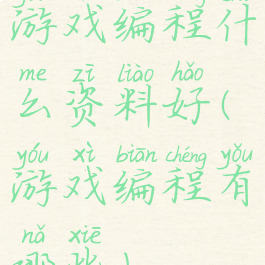 游戏编程什
me zī liào hǎo
么资料好(
yóu xì biān chéng yǒu
游戏编程有
nǎ xiē
哪些)